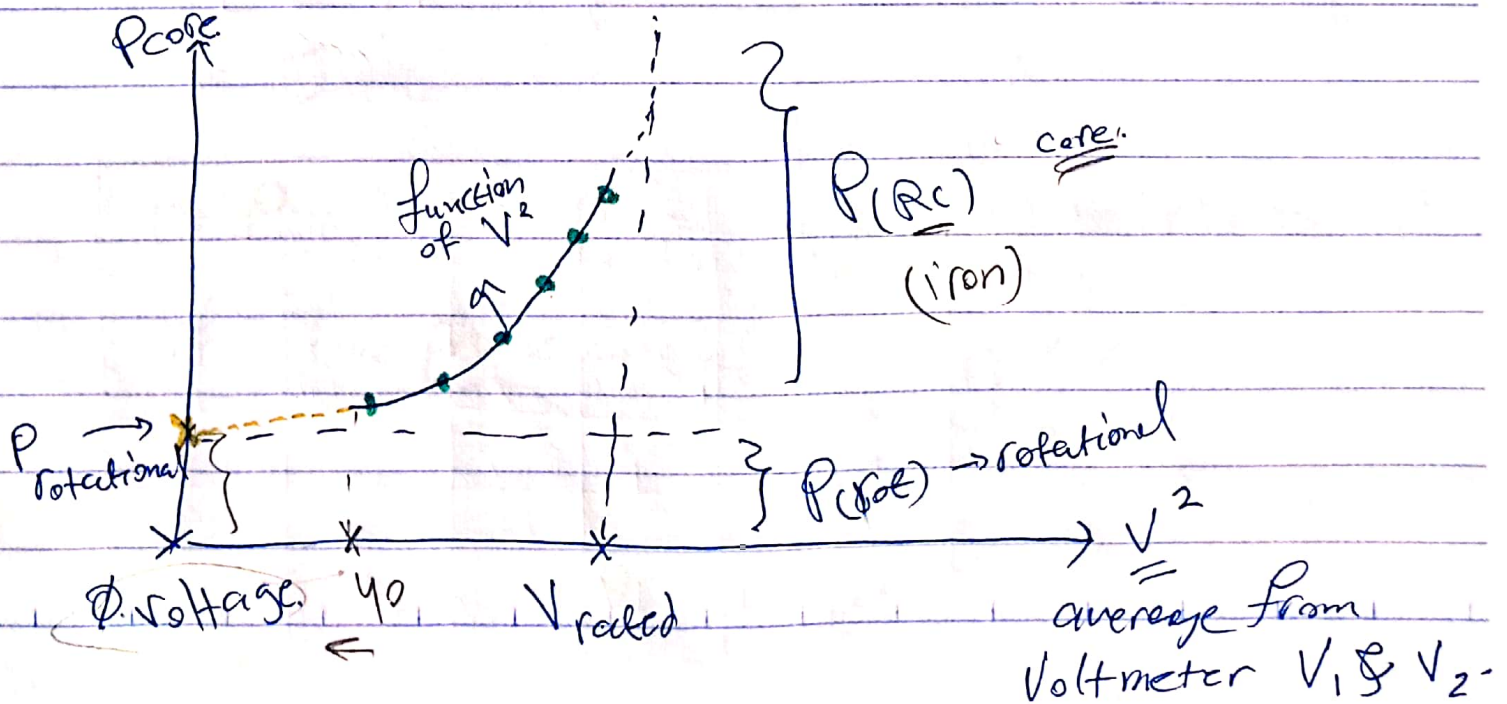 Pcore
function
of V²
core.
P(Rc)
(iron)
P rotational
P(rot) → rotational
V²
0 voltage 40 V rated
average from
Voltmeter V₁ & V₂.